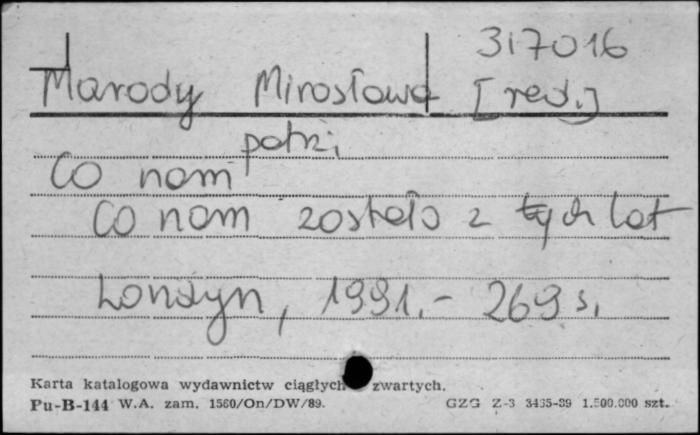 317016
Marody Mirosława [red.]
patrz,
Co nam
Co nam zostało z tych lat
Londyn, 1991.- 269 s.
Karta katalogowa wydawnictw ciągłych zwartych.
Pu-B-144 W.A. zam. 1560/On/DW/89. GZG Z-3 3435-89 1.500.000 szt.